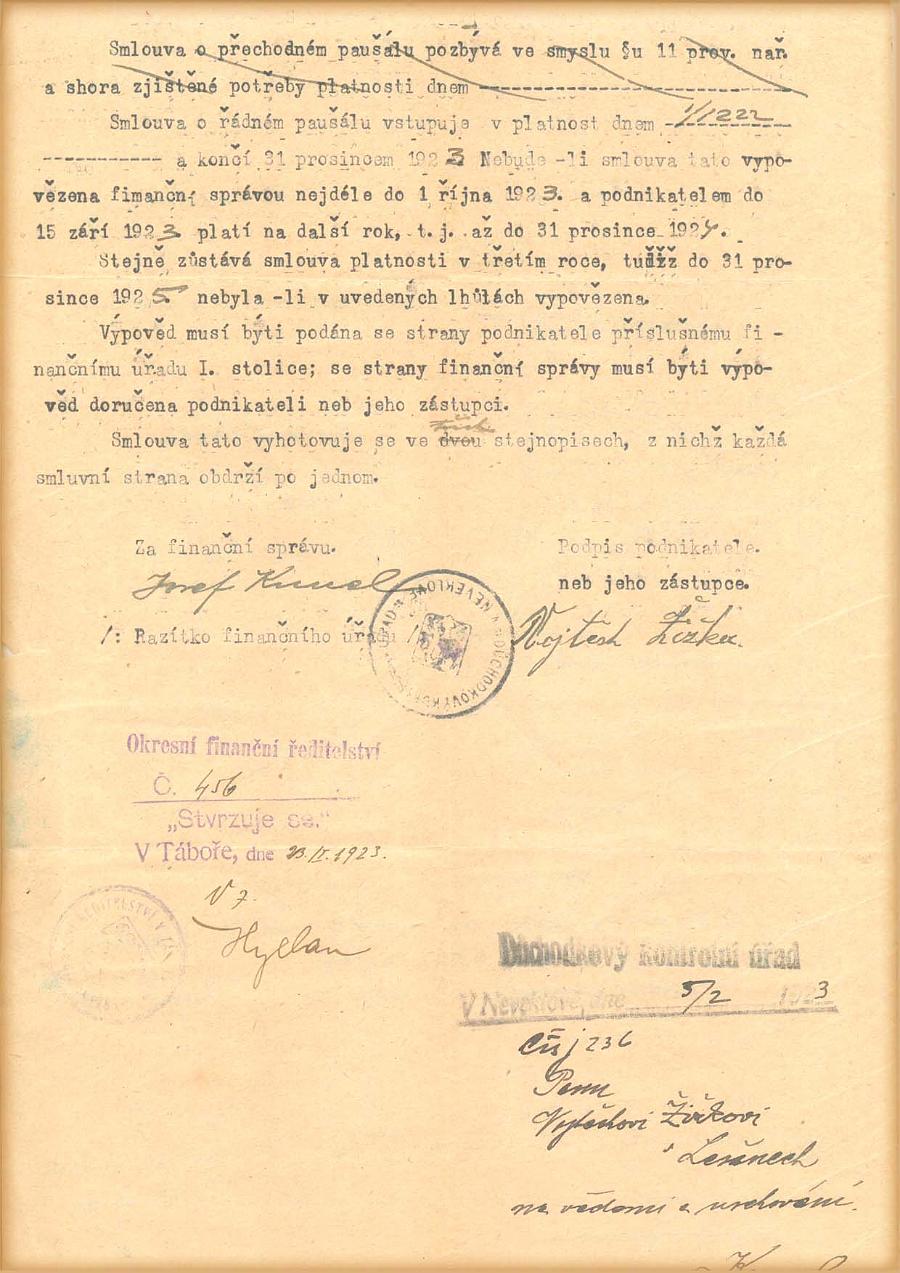 Smlouva o přechodném paušálu pozbývá ve smyslu §u 11 prov. nař.
a shora zjištěné potřeby platnosti dnem
Smlouva o řádném paušálu vstupuje v platnost dnem 1/1 1922
a končí 31 prosincem 1923 Nebude -li smlouva tato vypo-
vězena fimanční správou nejdéle do 1 října 1923. a podnikatelem do
15 září 1923 platí na další rok, t.j. až do 31 prosince 1924.
Stejně zůstává smlouva platnosti v třetím roce, tudíž do 31 pro-
since 1925. nebyla -li v uvedených lhůtách vypovězena.
Výpověd musí býti podána se strany podnikatele příslušnému fi -
nančnímu úřadu I. stolice; se strany finanční správy musí býti výpo-
věd doručena podnikateli neb jeho zástupci.
Smlouva tato vyhotovuje se ve dvou stejnopisech, z nichž každá
smluvní strana obdrží po jednom.
Za finanční správu.
Podpis podnikatele.
neb jeho zástupce.
Josef
/: Razítko finančního úřadu
Vojtěch Žižka.
DŮCHODKOVÝ
Okresní finanční ředitelství
Č. 456
„Stvrzuje se.“
V Táboře, dne 23.IV.1923.
Vz.
Důchodkový kontrolní úřad
V Neveklově, dne 5/2 1923
Čís j 236
Panu
Vojtěchovi Žižkovi
v Lešanech
na vědomí a uschování.